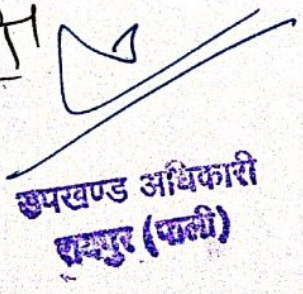 उपखण्ड अधिकारी
रायपुर (पाली)